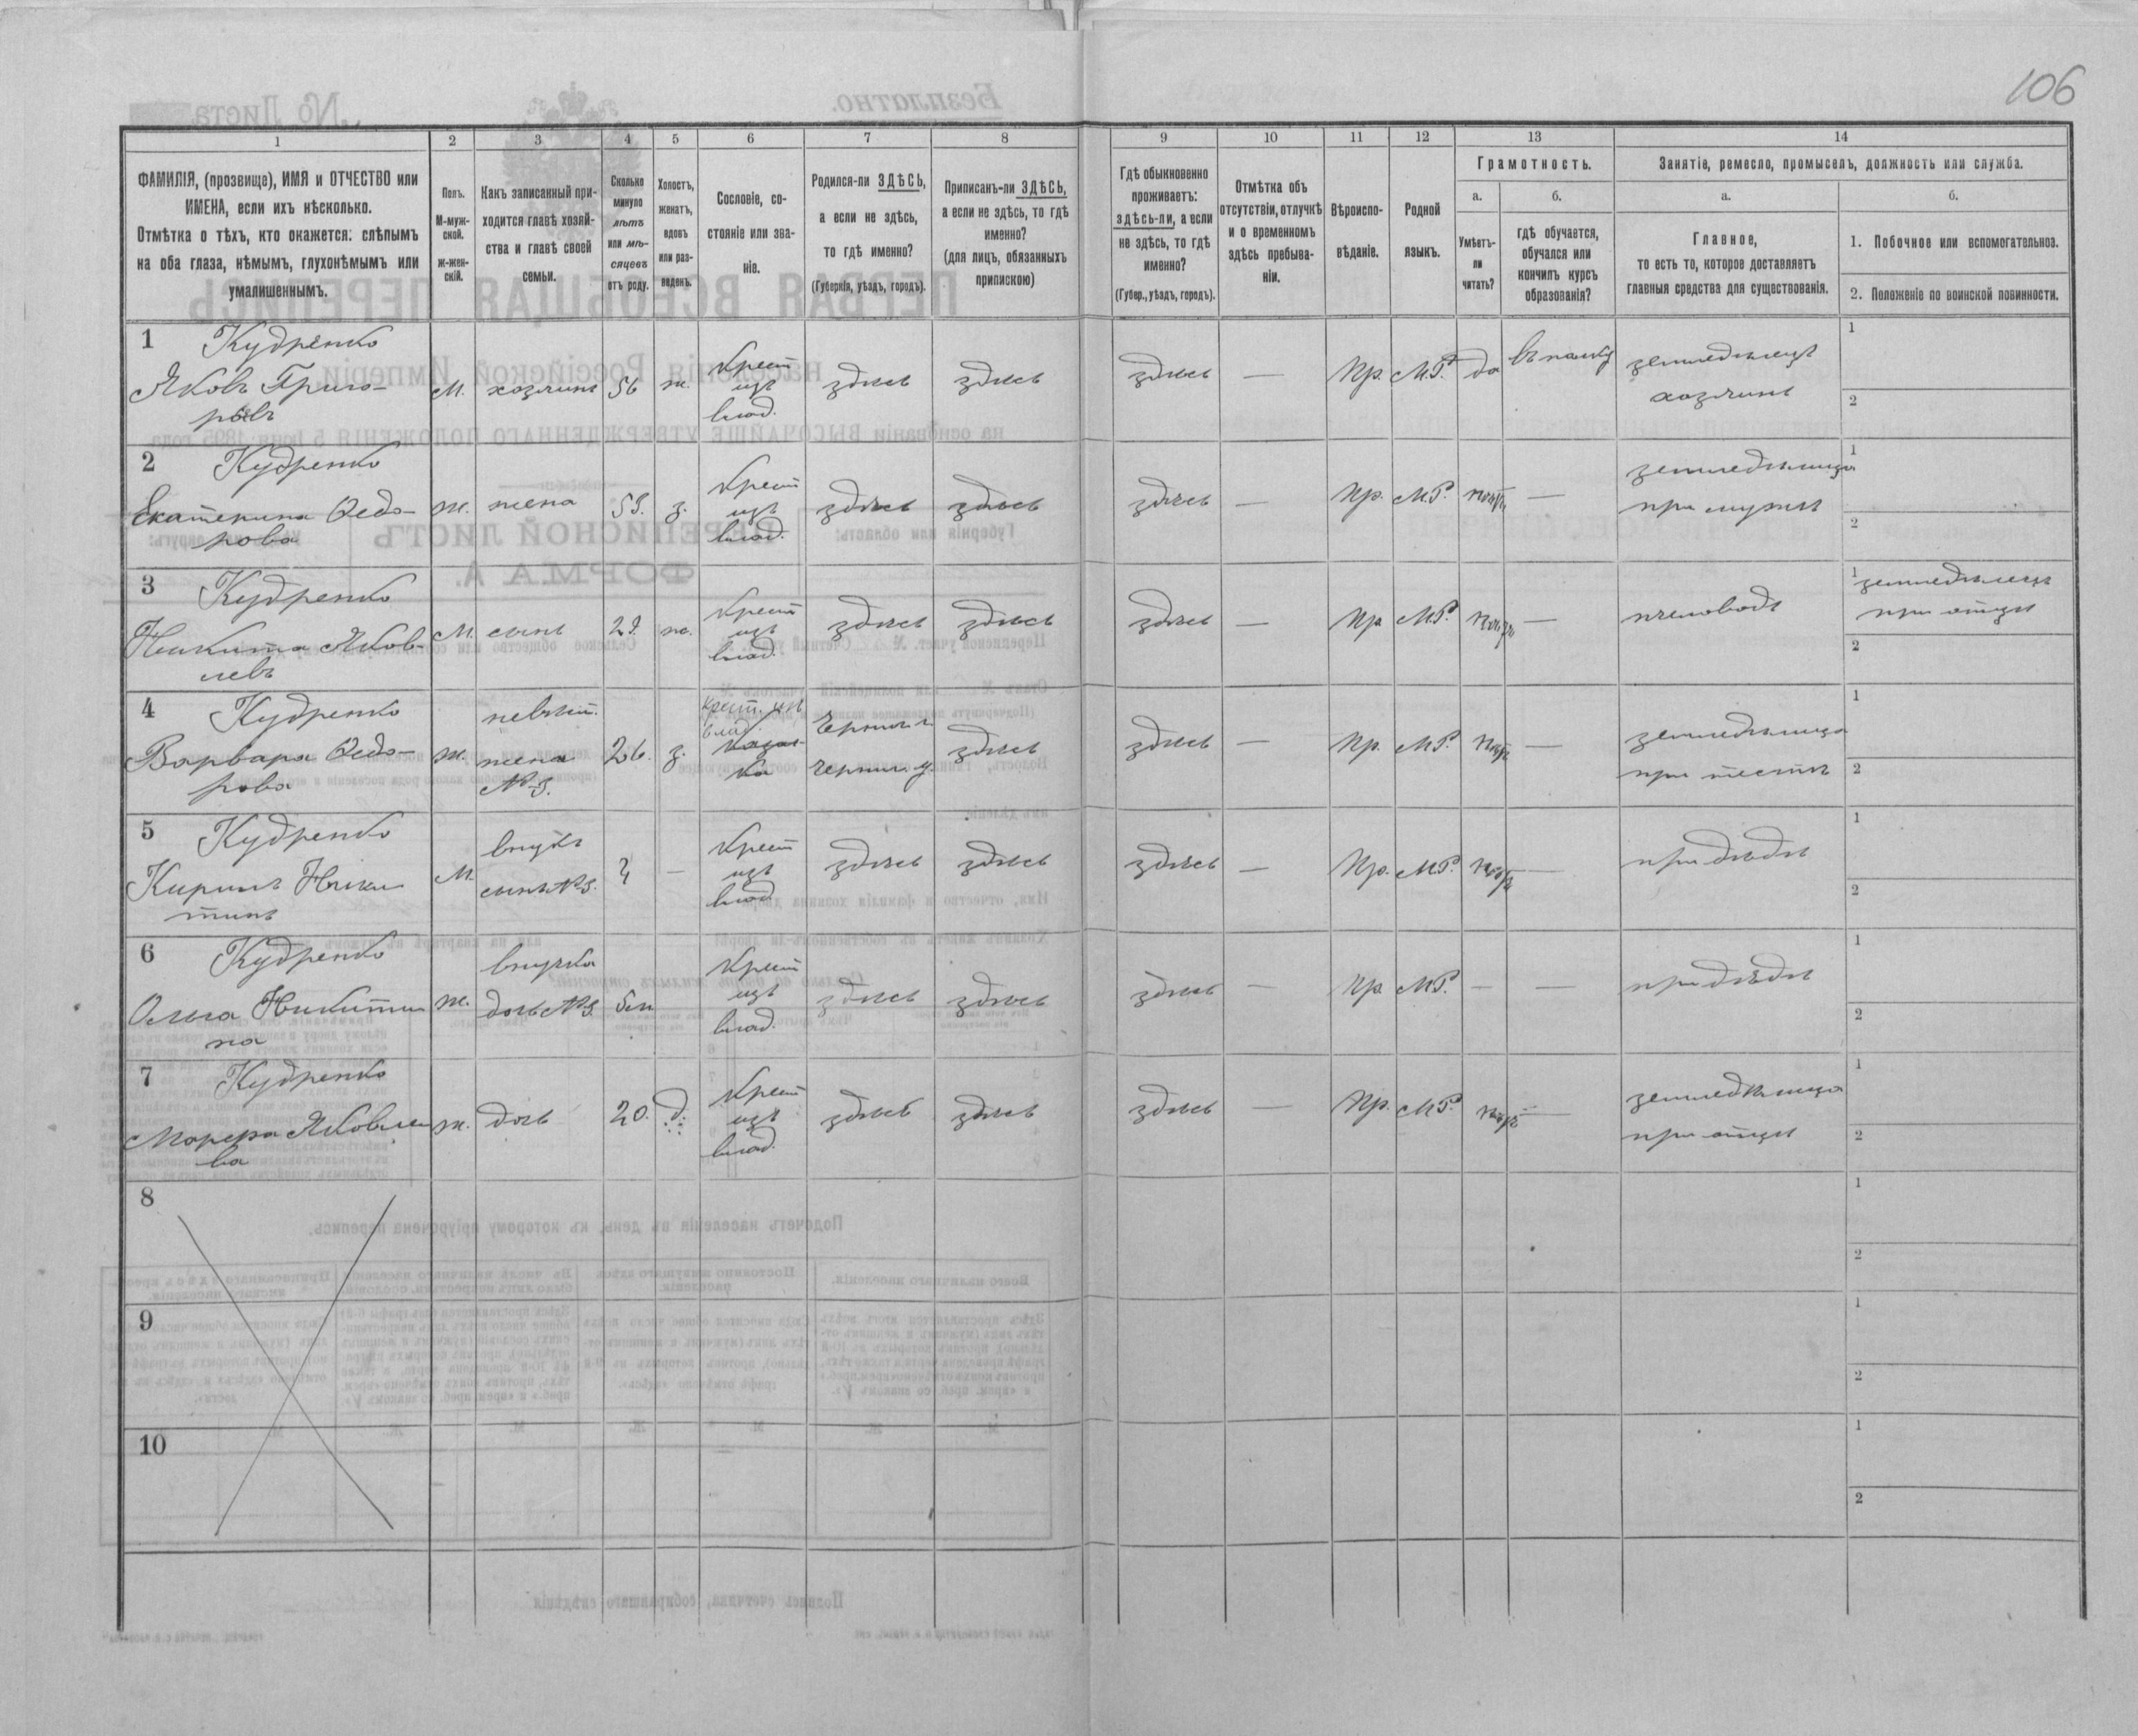 106
1 2 3 4 5 6 7 8 9 10 11 12 13 14
ФАМИЛІЯ, (прозвище), ИМЯ и ОТЧЕСТВО или
ИМЕНА, если ихъ нѣсколько.
Отмѣтка о тѣхъ, кто окажется: слѣпымъ
на оба глаза, нѣмымъ, глухонѣмымъ или
умалишеннымъ.
Полъ.
М-муж-
ской.
ж-жен-
скій.
Какъ записанный при-
ходится главѣ хозяй-
ства и главѣ своей
семьи.
Сколько
минуло
лѣтъ
или мѣ-
сяцевъ
отъ роду.
Холостъ,
женатъ,
вдовъ
или раз-
веденъ.
Сословіе, со-
стояніе или зва-
ніе.
Родился-ли ЗДѢСЬ,
а если не здѣсь,
то гдѣ именно?
(Губернія, уѣздъ, городъ).
Приписанъ-ли ЗДѢСЬ,
а если не здѣсь, то гдѣ
именно?
(для лицъ, обязанныхъ
припискою)
Гдѣ обыкновенно
проживаетъ:
здѣсь-ли, а если
не здѣсь, то гдѣ
именно?
(Губер., уѣздъ, городъ).
Отмѣтка объ
отсутствіи, отлучкѣ
и о временномъ
здѣсь пребыва-
ніи.
Вѣроиспо-
вѣданіе.
Родной
языкъ.
Грамотность.
а.
Умѣетъ-
ли
читать?
б.
гдѣ обучается,
обучался или
кончилъ курсъ
образованія?
Занятіе, ремесло, промыселъ, должность или служба.
а.
Главное,
то есть то, которое доставляетъ
главныя средства для существованія.
б.
1. Побочное или вспомогательное.
2. Положеніе по воинской повинности.
1 Кудренко
Яковъ Григо-
рьевъ
М. хозяинъ 56 ж.
Крест
изъ
влад.
здѣсь здѣсь здѣсь — Пр. М.Р. да
земледѣлецъ
хозяинъ
1
2
2 Кудренко
Екатерина Ѳедо-
рова
ж. жена 53. з.
Крест
изъ
влад.
здѣсь здѣсь здѣсь — Пр. М.Р. —
земледѣлица
при мужѣ
1
2
3 Кудренко
Никита Яков-
левъ
М. сынъ ж.
Крест
изъ
влад.
здѣсь здѣсь здѣсь — Пр М.Р. —
пчеловодъ
1 земледѣлецъ
при отцѣ
2
4 Кудренко
Варвара Ѳедо-
рова
ж. невѣст.
жена
№3.
26. з.
крест. изъ
влад.
казач-
ка
Чернига г.
Черниг. у.
здѣсь здѣсь — Пр. М.Р. —
земледѣлица
при тестѣ
1
2
5 Кудренко
Кирилъ Ники
тинъ
М. внукъ
сынъ №3.
—
Крест
изъ
влад
здѣсь здѣсь здѣсь — Пр. М.Р. —
при дѣдѣ
1
2
6 Кудренко
Ольга Никитин
на
ж. внучка
дочь №3. 6м
Крест
изъ
влад.
здѣсь здѣсь здѣсь — Пр. М.Р. — —
при дѣдѣ
1
2
7 Кудренко
Яковле
ва
ж. дочь 20. д.
Крест
изъ
влад.
здѣсь здѣсь здѣсь — Пр. М.Р. —
земледѣлица
при отцѣ
1
2
8
1
2
9
1
2
10
1
2